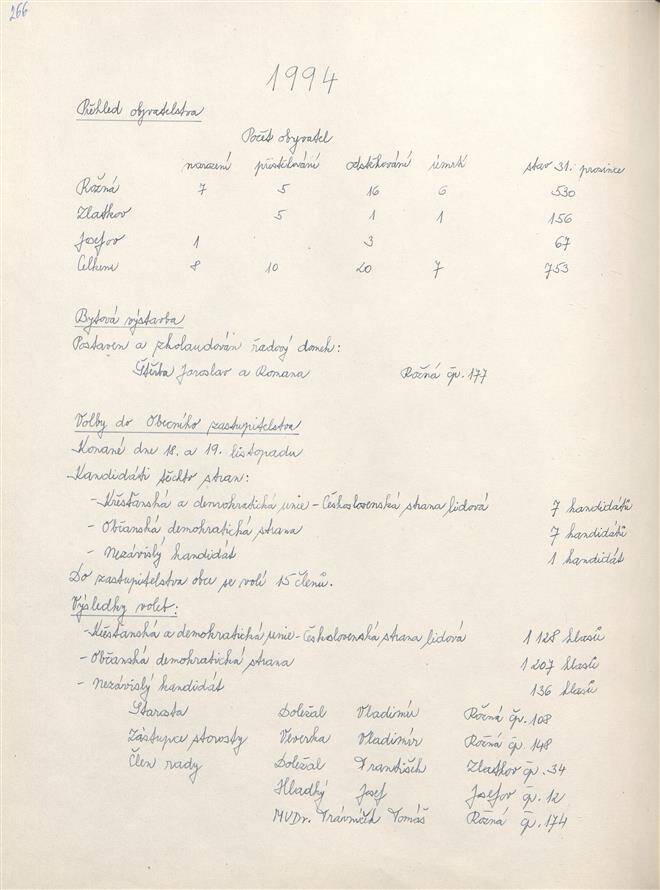 266
1994
Přehled obyvatelstva
Počet obyvatel
narození přistěhování odstěhování úmrtí stav 31. prosince
Rožná 7 5 16 6 530
Zlatkov 5 1 1 156
Josefov 1 3 67
Celkem 8 10 20 7 753
Bytová výstavba
Postaven a zkolaudován řadový domek:
Štěrba Jaroslav a Romana Rožná čp. 177
Volby do Obecního zastupitelstva
Konané dne 18. a 19. listopadu
Kandidáti těchto stran:
- Křesťanská a demokratická unie - Československá strana lidová 7 kandidátů
- Občanská demokratická strana 7 kandidátů
- Nezávislý kandidát 1 kandidát
Do zastupitelstva obce se volí 15 členů.
Výsledky voleb:
- Křesťanská a demokratická unie - Československá strana lidová 1 128 hlasů
- Občanská demokratická strana 1 207 hlasů
- Nezávislý kandidát 136 hlasů
Starosta Doležal Vladimír Rožná čp. 108
Zástupce starosty Veverka Vladimír Rožná čp. 148
Člen rady Doležal František Zlatkov čp. 34
Hladký Josef Josefov čp. 12
MVDr. Trávníček Tomáš Rožná čp. 174